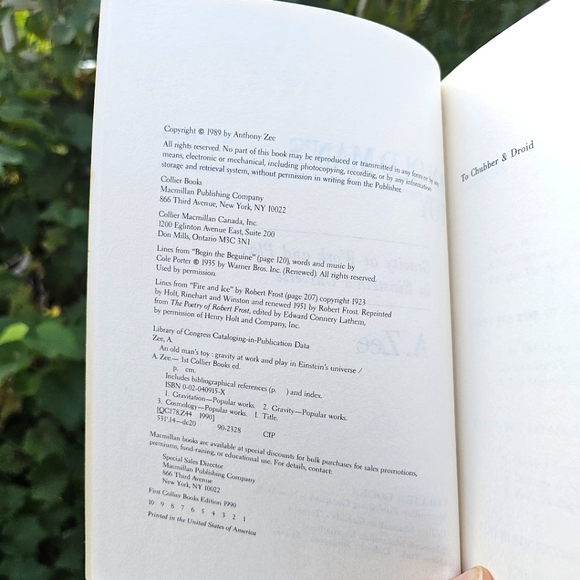 Copyright © 1989 by Anthony Zee
All rights reserved. No part of this book may be reproduced or transmitted in any form or by any
means, electronic or mechanical, including photocopying, recording, or by any information
storage and retrieval system, without permission in writing from the Publisher.
Collier Books
Macmillan Publishing Company
866 Third Avenue, New York, NY 10022
Collier Macmillan Canada, Inc.
1200 Eglinton Avenue East, Suite 200
Don Mills, Ontario M3C 3N1
Lines from "Begin the Beguine" (page 120), words and music by
Cole Porter © 1935 by Warner Bros. Inc. (Renewed) All rights reserved.
Used by permission.
Lines from "Fire and Ice" by Robert Frost (page 207) copyright 1923
by Holt, Rinehart and Winston and renewed 1951 by Robert Frost. Reprinted
from The Poetry of Robert Frost, edited by Edward Connery Lathem,
by permission of Henry Holt and Company, Inc.
Library of Congress Cataloging-in-Publication Data
Zee, A.
An old man's toy : gravity at work and play in Einstein's universe /
A. Zee.— 1st Collier Books ed.
p. cm.
Includes bibliographical references (p. ) and index.
ISBN 0-02-040915-X
1. Gravitation—Popular works. 2. Gravity—Popular works.
3. Cosmology—Popular works. I. Title.
[QC178.Z44 1990]
531'.14—dc20 90-2328 CIP
Macmillan books are available at special discounts for bulk purchases for sales promotions,
premiums, fund-raising, or educational use. For details, contact:
Special Sales Director
Macmillan Publishing Company
866 Third Avenue
New York, NY 10022
First Collier Books Edition 1990
10 9 8 7 6 5 4 3 2 1
Printed in the United States of America
To Chubber & Droid